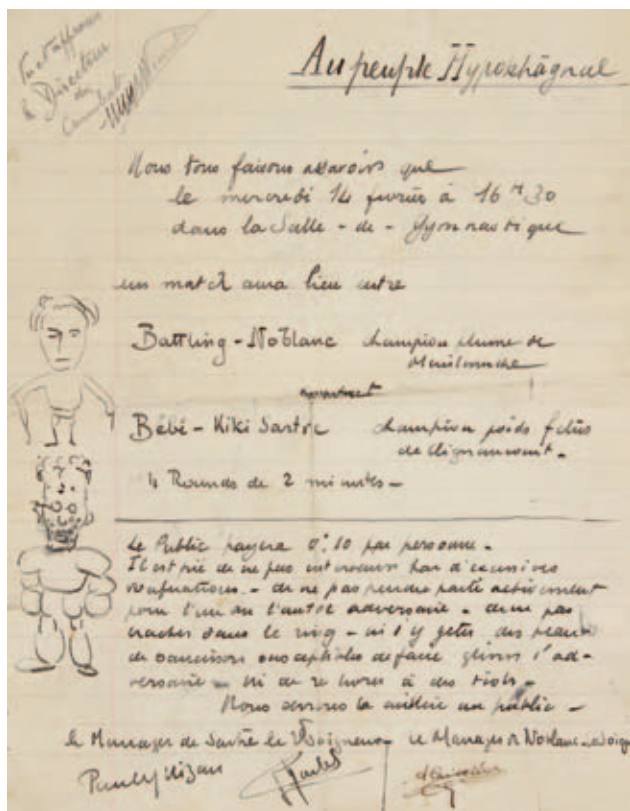 Le Directeur
du
Combat
Au peuple Hypokhâgnal
Nous tous faisons assavoir que
le mercredi 14 février à 16 H 30
dans la Salle - de - Gymnastique
un match aura lieu entre
Battling - Noblanc champion plume de
Ménilmuche
Bébé - Kiki Sartre champion poids fœtus
de Clignancourt -
4 Rounds de 2 minutes -
Le Public payera 0f.10 par personne -
Il est prié de ne pas intervenir par d'excessives
- de ne pas prendre parti activement
pour l'un ou l'autre adversaire - de ne pas
cracher dans le ring - ni d'y jeter des peaux
de saucissons susceptibles de faire glisser l'ad-
versaire - ni de se livrer à des
Nous au public -
le Manager de Sartre le Soigneur - le Manager de Noblanc - le Soign
Paul Y Nizan